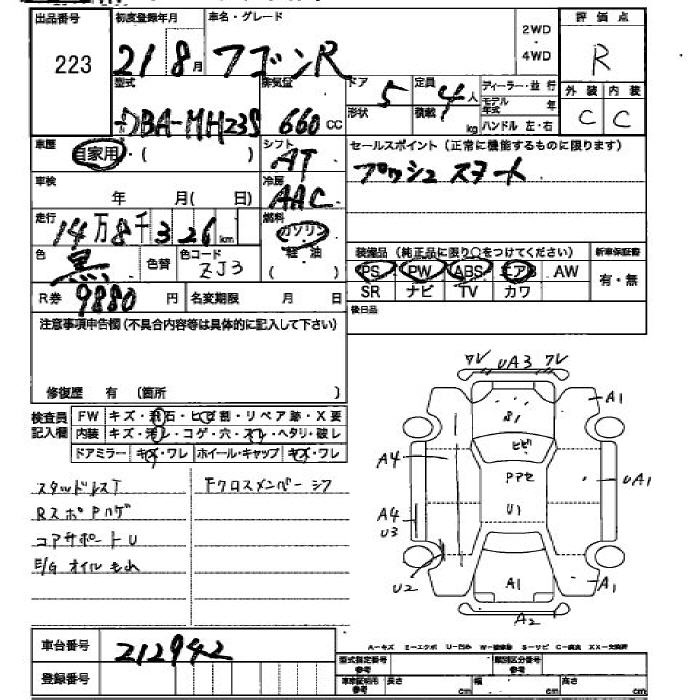 出品番号 初度登録年月 車名・グレード 2WD 評価点
223 21 8月 ワゴンR 4WD R
型式 排気量 ドア 5 定員 4人 ディーラー・並行 外装 内装
DBA-MH23S 660cc 形状 積載 kg モデル年式 年 C C
ハンドル 左・右
車歴 自家用・( ) シフト AT セールスポイント(正常に機能するものに限ります)
車検 年 月( 日) 冷房 AAC プッシュスタート
走行 14万8千326km 燃料 ガソリン 軽油 ( )
色 黒 色替 色コード ZJ3 装備品(純正品に限り○をつけてください) 新車保証書
PS PW ABS エアB AW 有・無
R券 9880円 名変期限 月 日 SR ナビ TV カワ
注意事項申告欄(不具合内容等は具体的に記入して下さい) 後日品
修復歴 有(箇所 )
検査員記入欄 FW キズ・飛石・ヒビ割・リペア跡・X要
内装 キズ・汚レ・コゲ・穴・スレ・ヘタリ・破レ
ドアミラー キズ・ワレ ホイール・キャップ キズ・ワレ
スタッドレスT Fクロスメンバーシフ
RスポPハゲ
コアサポートU
E/Gオイルもれ
ワレ UA3 ワレ
A1
ヒビ
A4 Pアセ UA1
A4 U1
U3
U2 A1 A1
A2
A-キズ E-エクボ U-凹み W-補修跡 S-サビ C-腐食 XX-交換済
車台番号 212942 型式指定番号 参考 類別区分番号 参考
登録番号 車庫証明用 参考 長さ cm 幅 cm 高さ cm